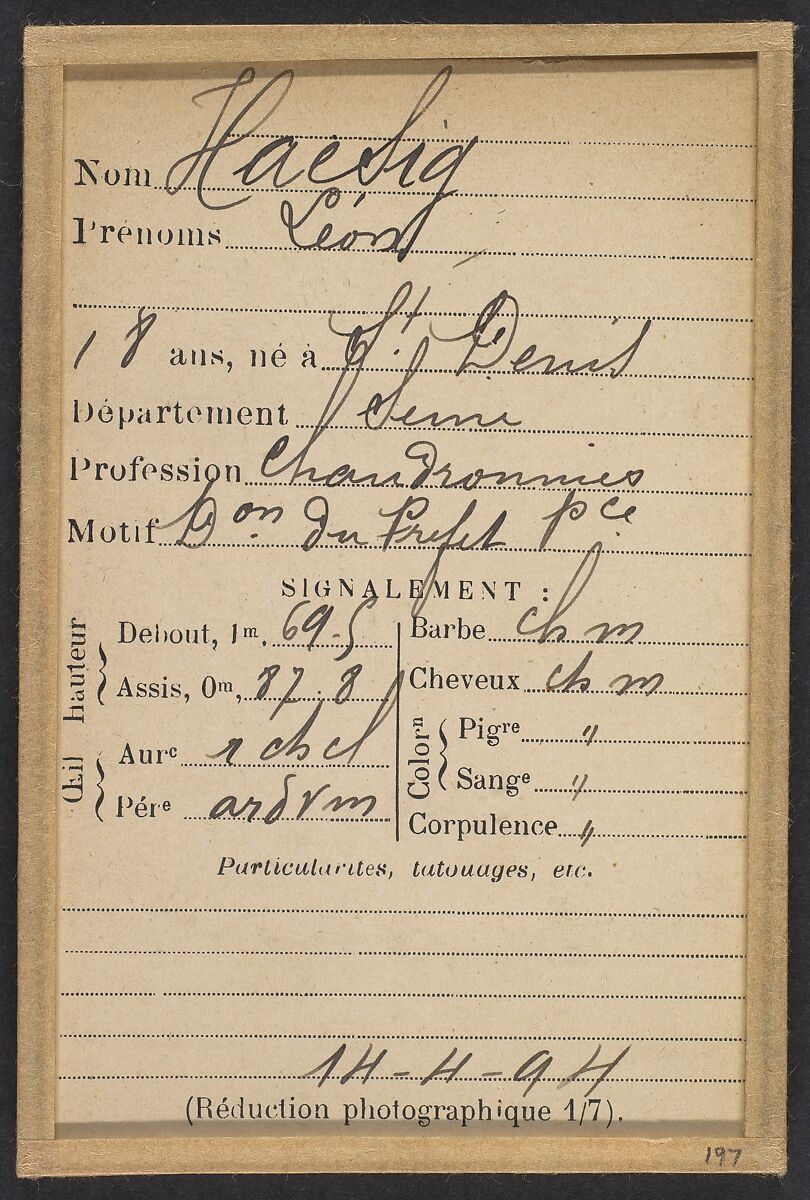 Nom Haesig
Prénoms Léon
18 ans, né à St Denis
Département Seine
Profession Chaudronnier
Motif Don du Préfet Pce
SIGNALEMENT :
hauteur
Debout, 1m, 69-5
Assis, 0m, 87.8
Œil
Aure r ch cl
Pére ardvm
Barbe ch m
Cheveux ch m
Colorn
Pigre "
Sange "
Corpulence "
Particularites, tatouages, etc.
14-4-94
(Réduction photographique 1/7).
197